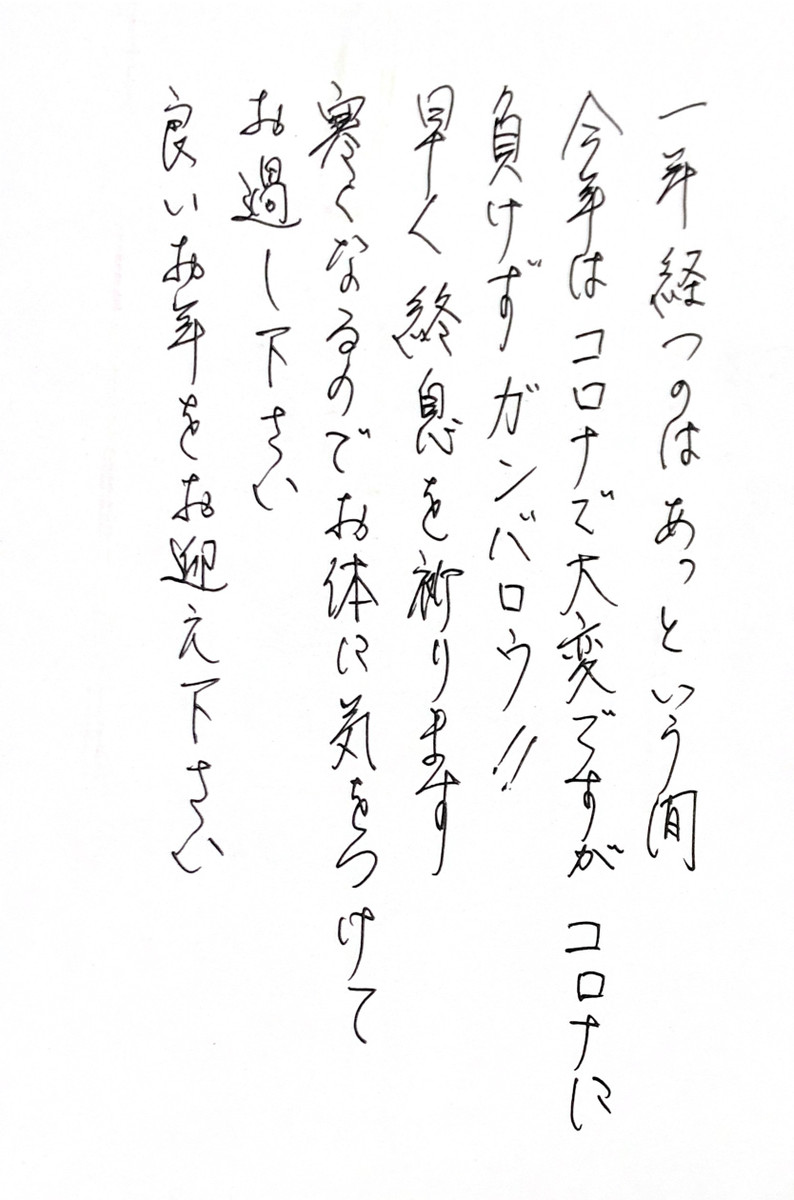 一年経つのはあっという間
今年はコロナで大変ですがコロナに
負けずガンバロウ!!
早く終息を祈ります
寒くなるのでお体に気をつけて
お過し下さい
良いお年をお迎え下さい